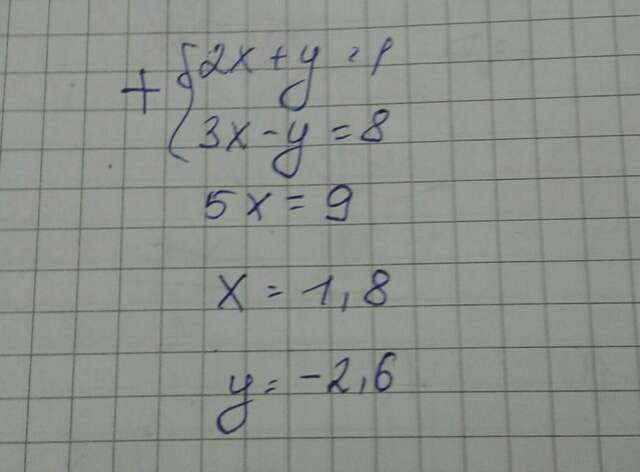 + { 2x + y = 1
3x - y = 8
5x = 9
x = 1,8
y = -2,6